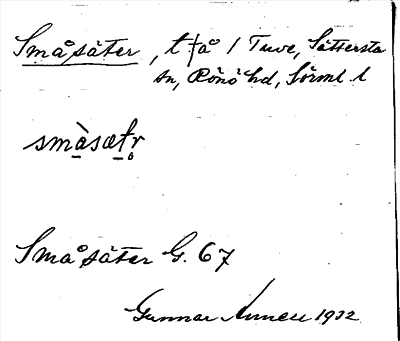 Småsäter, t på / Tuve, Sättersta
sn, Rönö hd, Sörml. l
smàsætr̥
Småsäter G. 67
Gunnar 1932